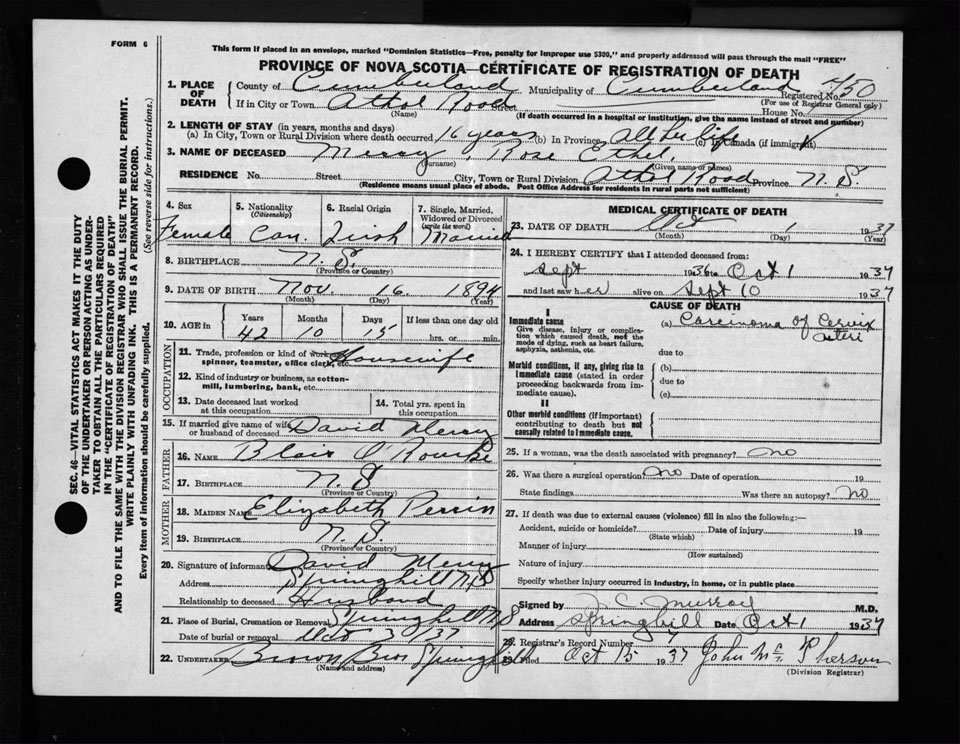 FORM 6
This form if placed in an envelope, marked "Dominion Statistics—Free, penalty for improper use $300," and properly addressed will pass through the mail "FREE"
PROVINCE OF NOVA SCOTIA—CERTIFICATE OF REGISTRATION OF DEATH
1. PLACE OF DEATH County of Cumberland Municipality of Cumberland Registered No. 450
(For use of Registrar General only)
If in City or Town Athol Road Street House No.
(Name) (If death occurred in a hospital or institution, give the name instead of street and number)
2. LENGTH OF STAY (in years, months and days)
(a) In City, Town or Rural Division where death occurred 16 years (b) In Province all her life (c) In Canada (if immigrant)
3. NAME OF DECEASED Merry, Rose Ethel
(Surname) (Given name or names)
RESIDENCE No. Street City, Town or Rural Division Athol Road Province N.S.
(Residence means usual place of abode. Post Office Address for residents in rural parts not sufficient)
4. Sex Female
5. Nationality (Citizenship) Can.
6. Racial Origin Irish
7. Single, Married, Widowed or Divorced (write the word) Married
8. BIRTHPLACE N.S.
(Province or Country)
9. DATE OF BIRTH Nov. 16 1894
(Month) (Day) (Year)
10. AGE in Years Months Days If less than one day old
42 10 15 hrs. or min.
OCCUPATION
11. Trade, profession or kind of work as spinner, teamster, office clerk, etc. Housewife
12. Kind of industry or business, as cotton-mill, lumbering, bank, etc.
13. Date deceased last worked at this occupation
14. Total yrs. spent in this occupation
15. If married give name of wife or husband of deceased David Merry
FATHER
16. NAME Blair O'Rourke
17. BIRTHPLACE N.S
(Province or Country)
MOTHER
18. MAIDEN NAME Elizabeth Perrin
19. BIRTHPLACE N.S.
(Province or Country)
20. Signature of informant David Merry
Address Springhill N.S
Relationship to deceased Husband
21. Place of Burial, Cremation or Removal Springhill N.S
Date of burial or removal Oct 3 / 37
22. UNDERTAKER Brown Bros Springhill
(Name and address)
MEDICAL CERTIFICATE OF DEATH
23. DATE OF DEATH Oct 1 1937
(Month) (Day) (Year)
24. I HEREBY CERTIFY that I attended deceased from:
Sept 1936 to Oct 1 1937
and last saw her alive on Sept 10 1937
CAUSE OF DEATH
I
Immediate cause (a) Carcinoma of Cervix uteri
Give disease, injury or complication which caused death, not the mode of dying, such as heart failure, asphyxia, asthenia, etc.
due to
Morbid conditions, if any, giving rise to immediate cause (stated in order proceeding backwards from immediate cause).
(b)
due to
(c)
II
Other morbid conditions (if important) contributing to death but not causally related to immediate cause.
25. If a woman, was the death associated with pregnancy? no
26. Was there a surgical operation? no Date of operation 19
State findings Was there an autopsy? no
27. If death was due to external causes (violence) fill in also the following:—
Accident, suicide or homicide? Date of injury 19
(State which)
Manner of injury
(How sustained)
Nature of injury
Specify whether injury occurred in industry, in home, or in public place
Signed by J. C. Murray M.D.
Address Springhill Date Oct 1 1937
28. Registrar's Record Number 7
29. Filed Oct 15 1937 John McPherson
(Division Registrar)
SEC. 46—VITAL STATISTICS ACT MAKES IT THE DUTY
OF THE UNDERTAKER OR PERSON ACTING AS UNDERTAKER TO OBTAIN ALL THE PARTICULARS REQUIRED
IN THE "CERTIFICATE OF REGISTRATION OF DEATH"
AND TO FILE THE SAME WITH THE DIVISION REGISTRAR WHO SHALL ISSUE THE BURIAL PERMIT.
WRITE PLAINLY WITH UNFADING INK. THIS IS A PERMANENT RECORD.
Every item of information should be carefully supplied. (See reverse side for instructions.)